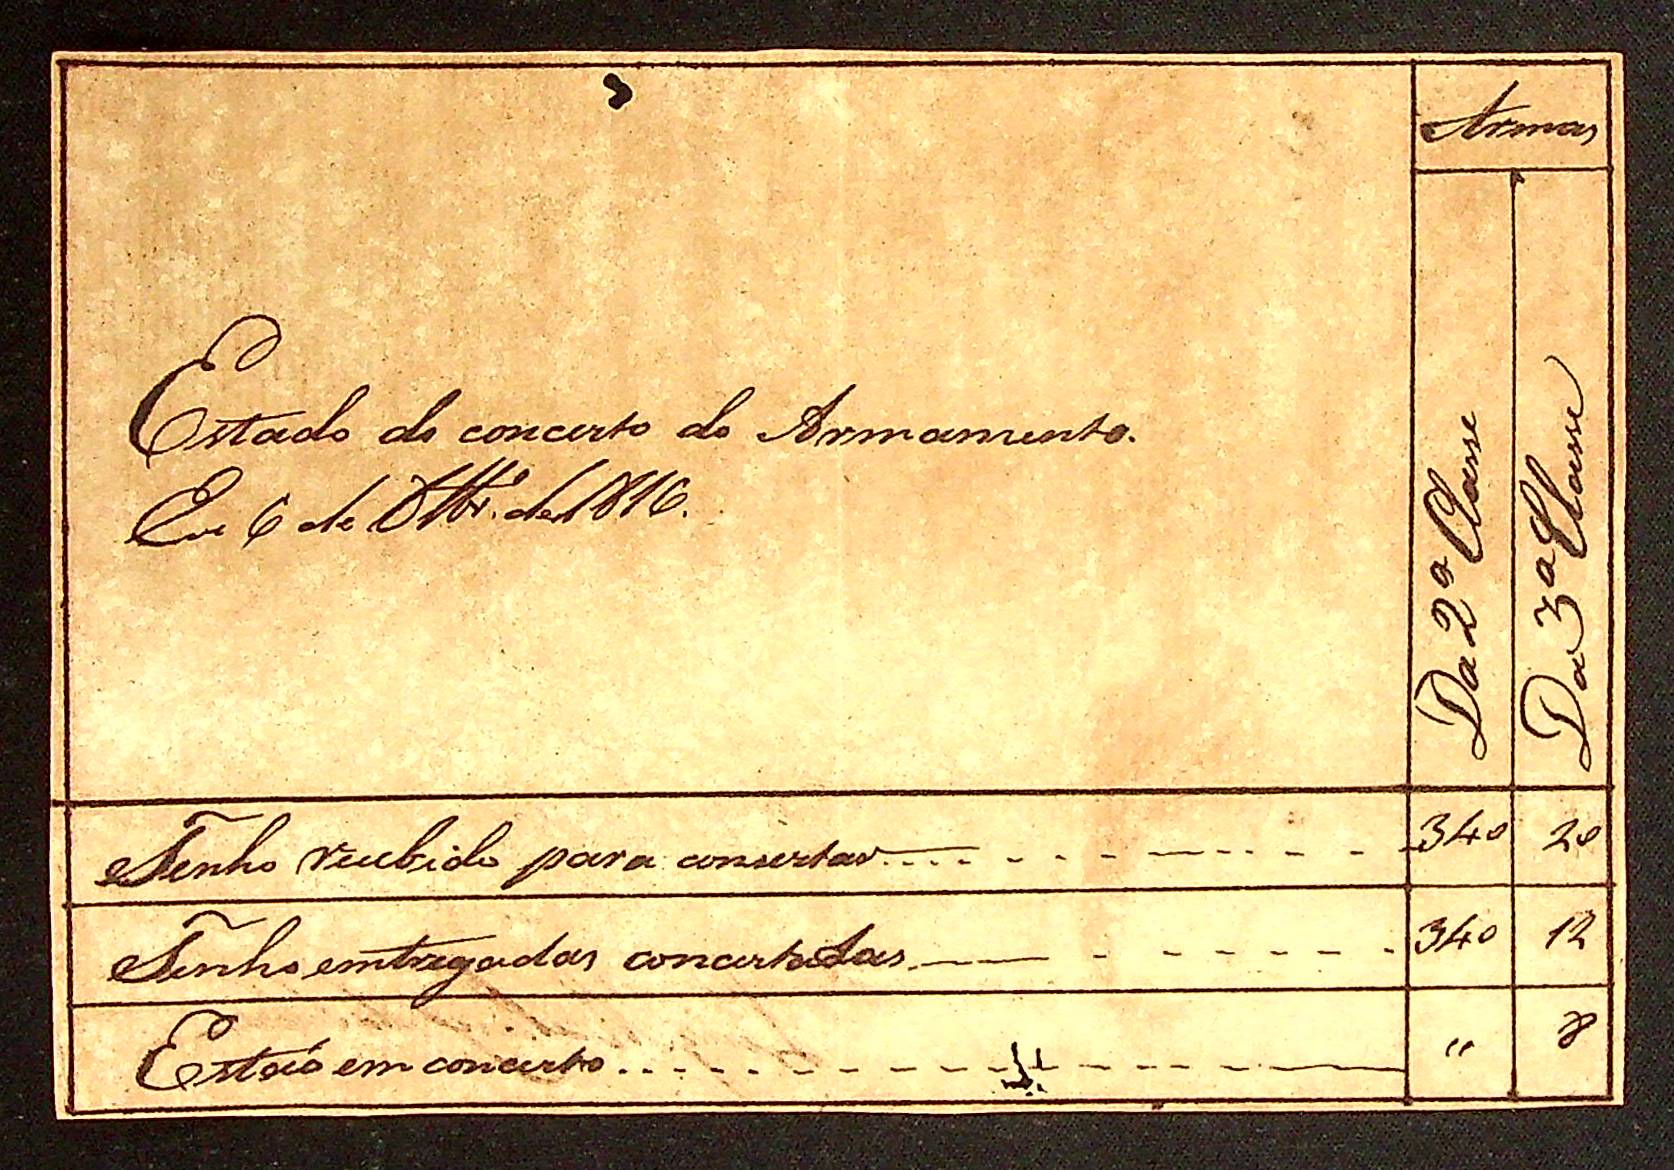 Armas
Da 2ª Classe
Da 3ª Classe
Estado do concerto do Armamento.
Em 6 de 8brº. de 1816.
Tenho recubido para consertar 340 20
Tenho entregadas concertadas 340 12
Estaõ em concerto " 8